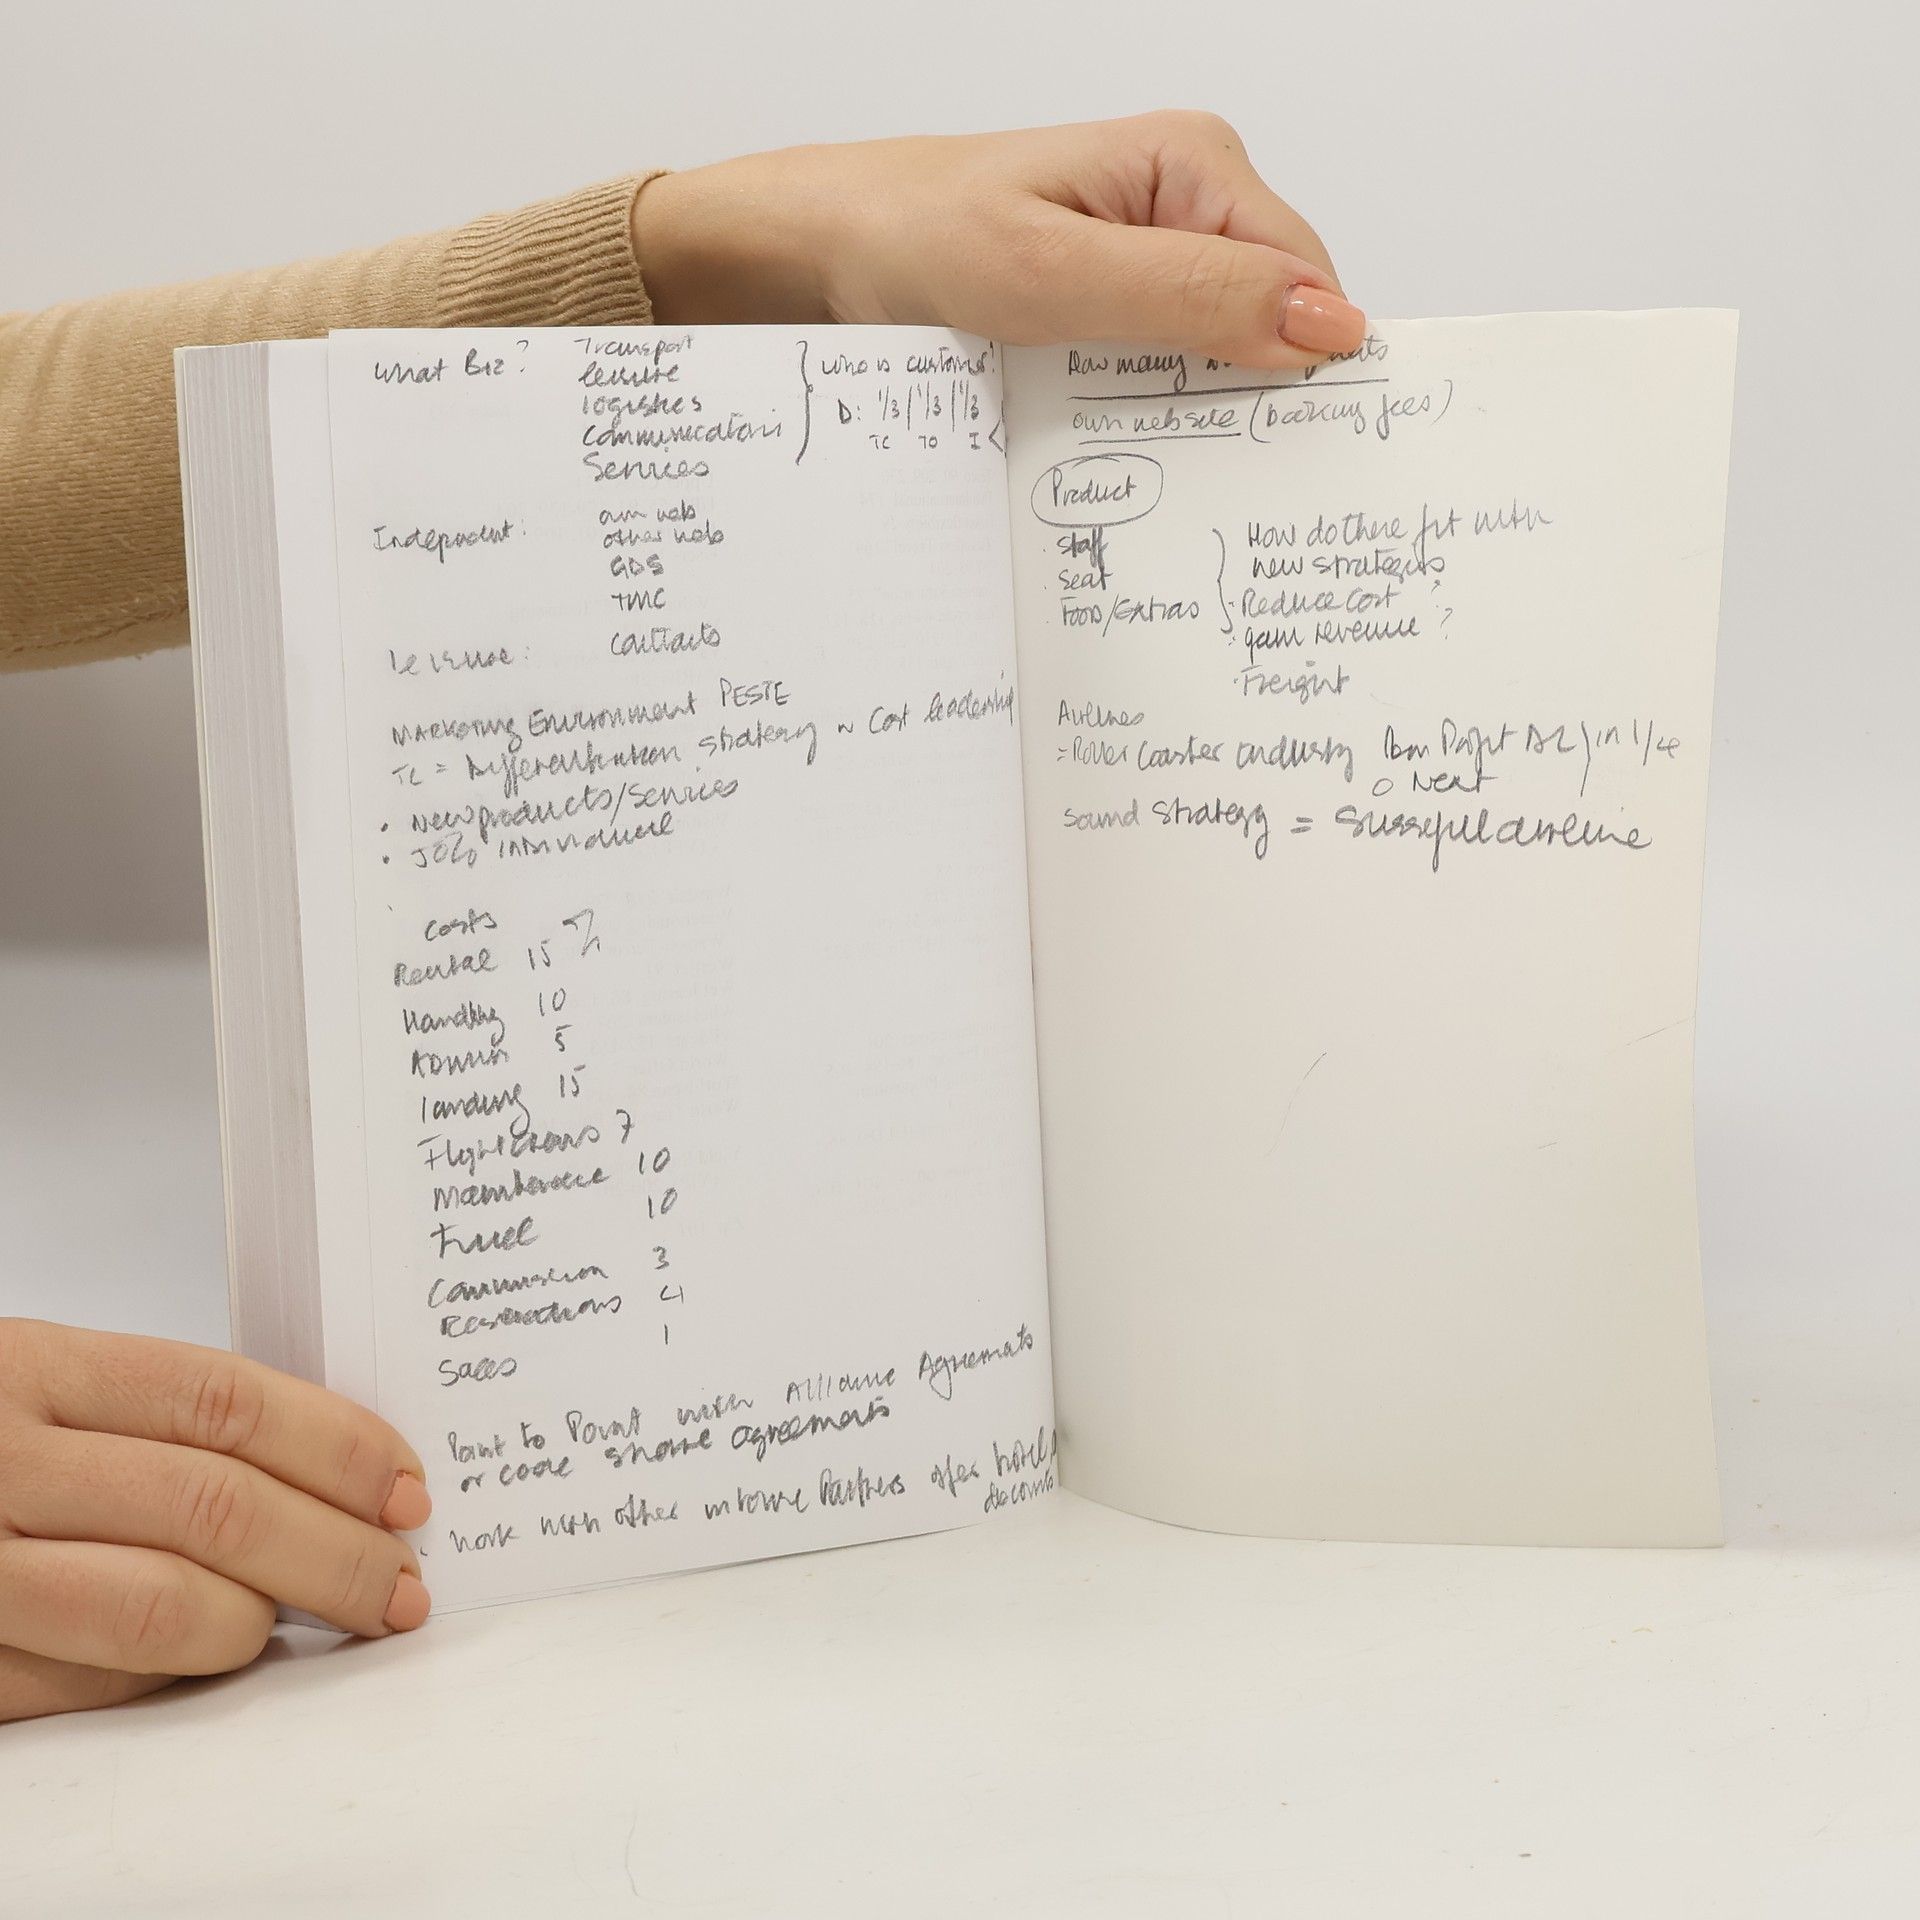 What Biz?
Transport
leisure
logistics
Communications
Services
who is customer?
D: 1/3 | 1/3 | 1/3
TC TO I
Independent:
own web
other web
GDS
TMC
Leisure:
contracts
MARKETING Environment PESTE
TC = Differentiation strategy ~ Cost leadership
• New products/services
• Individual
Costs
Rental 15 %
Handling 10
Admin 5
landing 15
Flight crews 7
Maintenance 10
Fuel 10
Commission 3
Reservations 4
Sales 1
Point to Point with Alliance Agreemats
or code share agreements
Work with other Partners offer hotel
discounts
How many
own website (booking fees)
Product
. Staff
. Seat
. Food/Extras
How do these fit with
new strategies
. Reduce Cost ?
. gain revenue ?
. Freight
Airlines
= Roller Coaster industry in 1/4
Sound Strategy = Sussefull airline